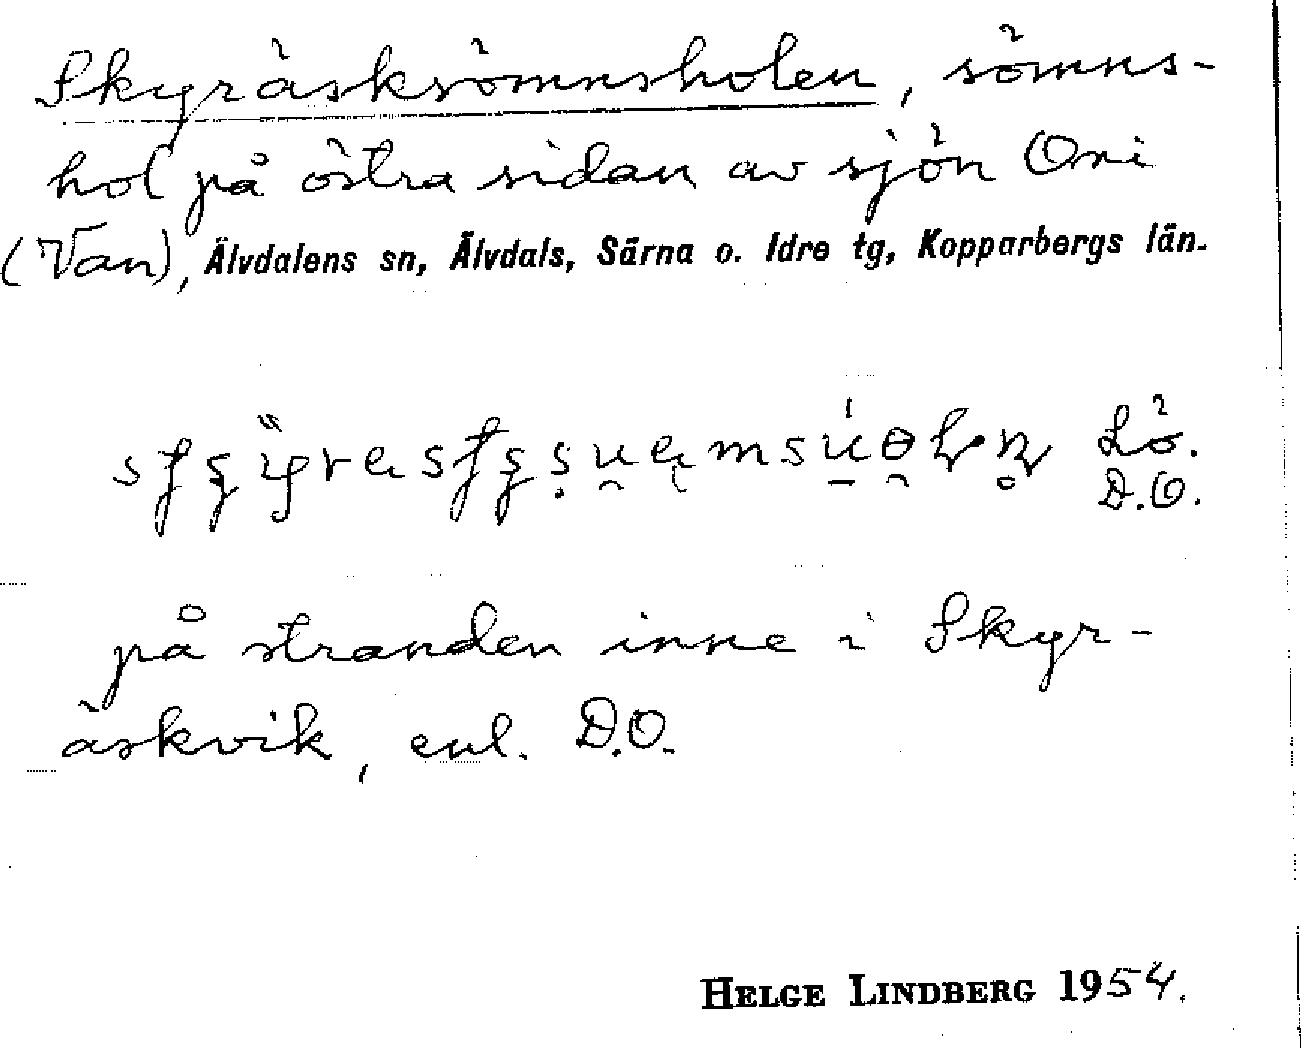 Skyräsksömnsholen, sömns-
hol på östra sidan av sjön Ori
(Van), Älvdalens sn, Älvdals, Särna o. Idre tg, Kopparbergs län.
Lö.
D.O.
på stranden inne i Skyr-
äskvik, enl. D.O.
HELGE LINDBERG 1954.